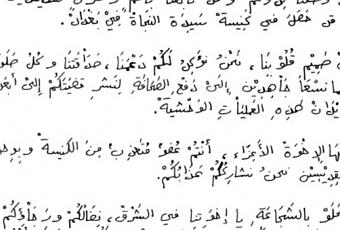 قد حَصَلَ في كَنِيسَة سَيِّدَة النَجَاة فِيْ بَغْدَادْ.
صَمِيْمِ قُلُوْبِنَا، نَحْنُ نُؤَكِّدُ لَكُمْ دَعْمَنَا، صَدَاقَتَنَا وَكُلَّ
نَسْعَا جَاهِدِيْن إِلَىْ دَفْعِ الصَّحَافَةِ لِنَشْرِ قَضِيَّتَكُمْ إِلَىْ
لهذِهِ العَمَلِيَّاتِ الوَحْشِيَّة.
الإِخْوَةُ الأَعِزَّاء، أَنْتُمْ عُضْو مُتَعَذِّب مِنَ الكَنِيسَة
نَحْنُ نُشَارِكُكُمْ عَذَابَكُمْ.
بِالشَّجَاعَةِ يا إخْوَتِنَا في الشَّرْق، نِضَالُكُمْ وَرَجَاؤُكُمْ